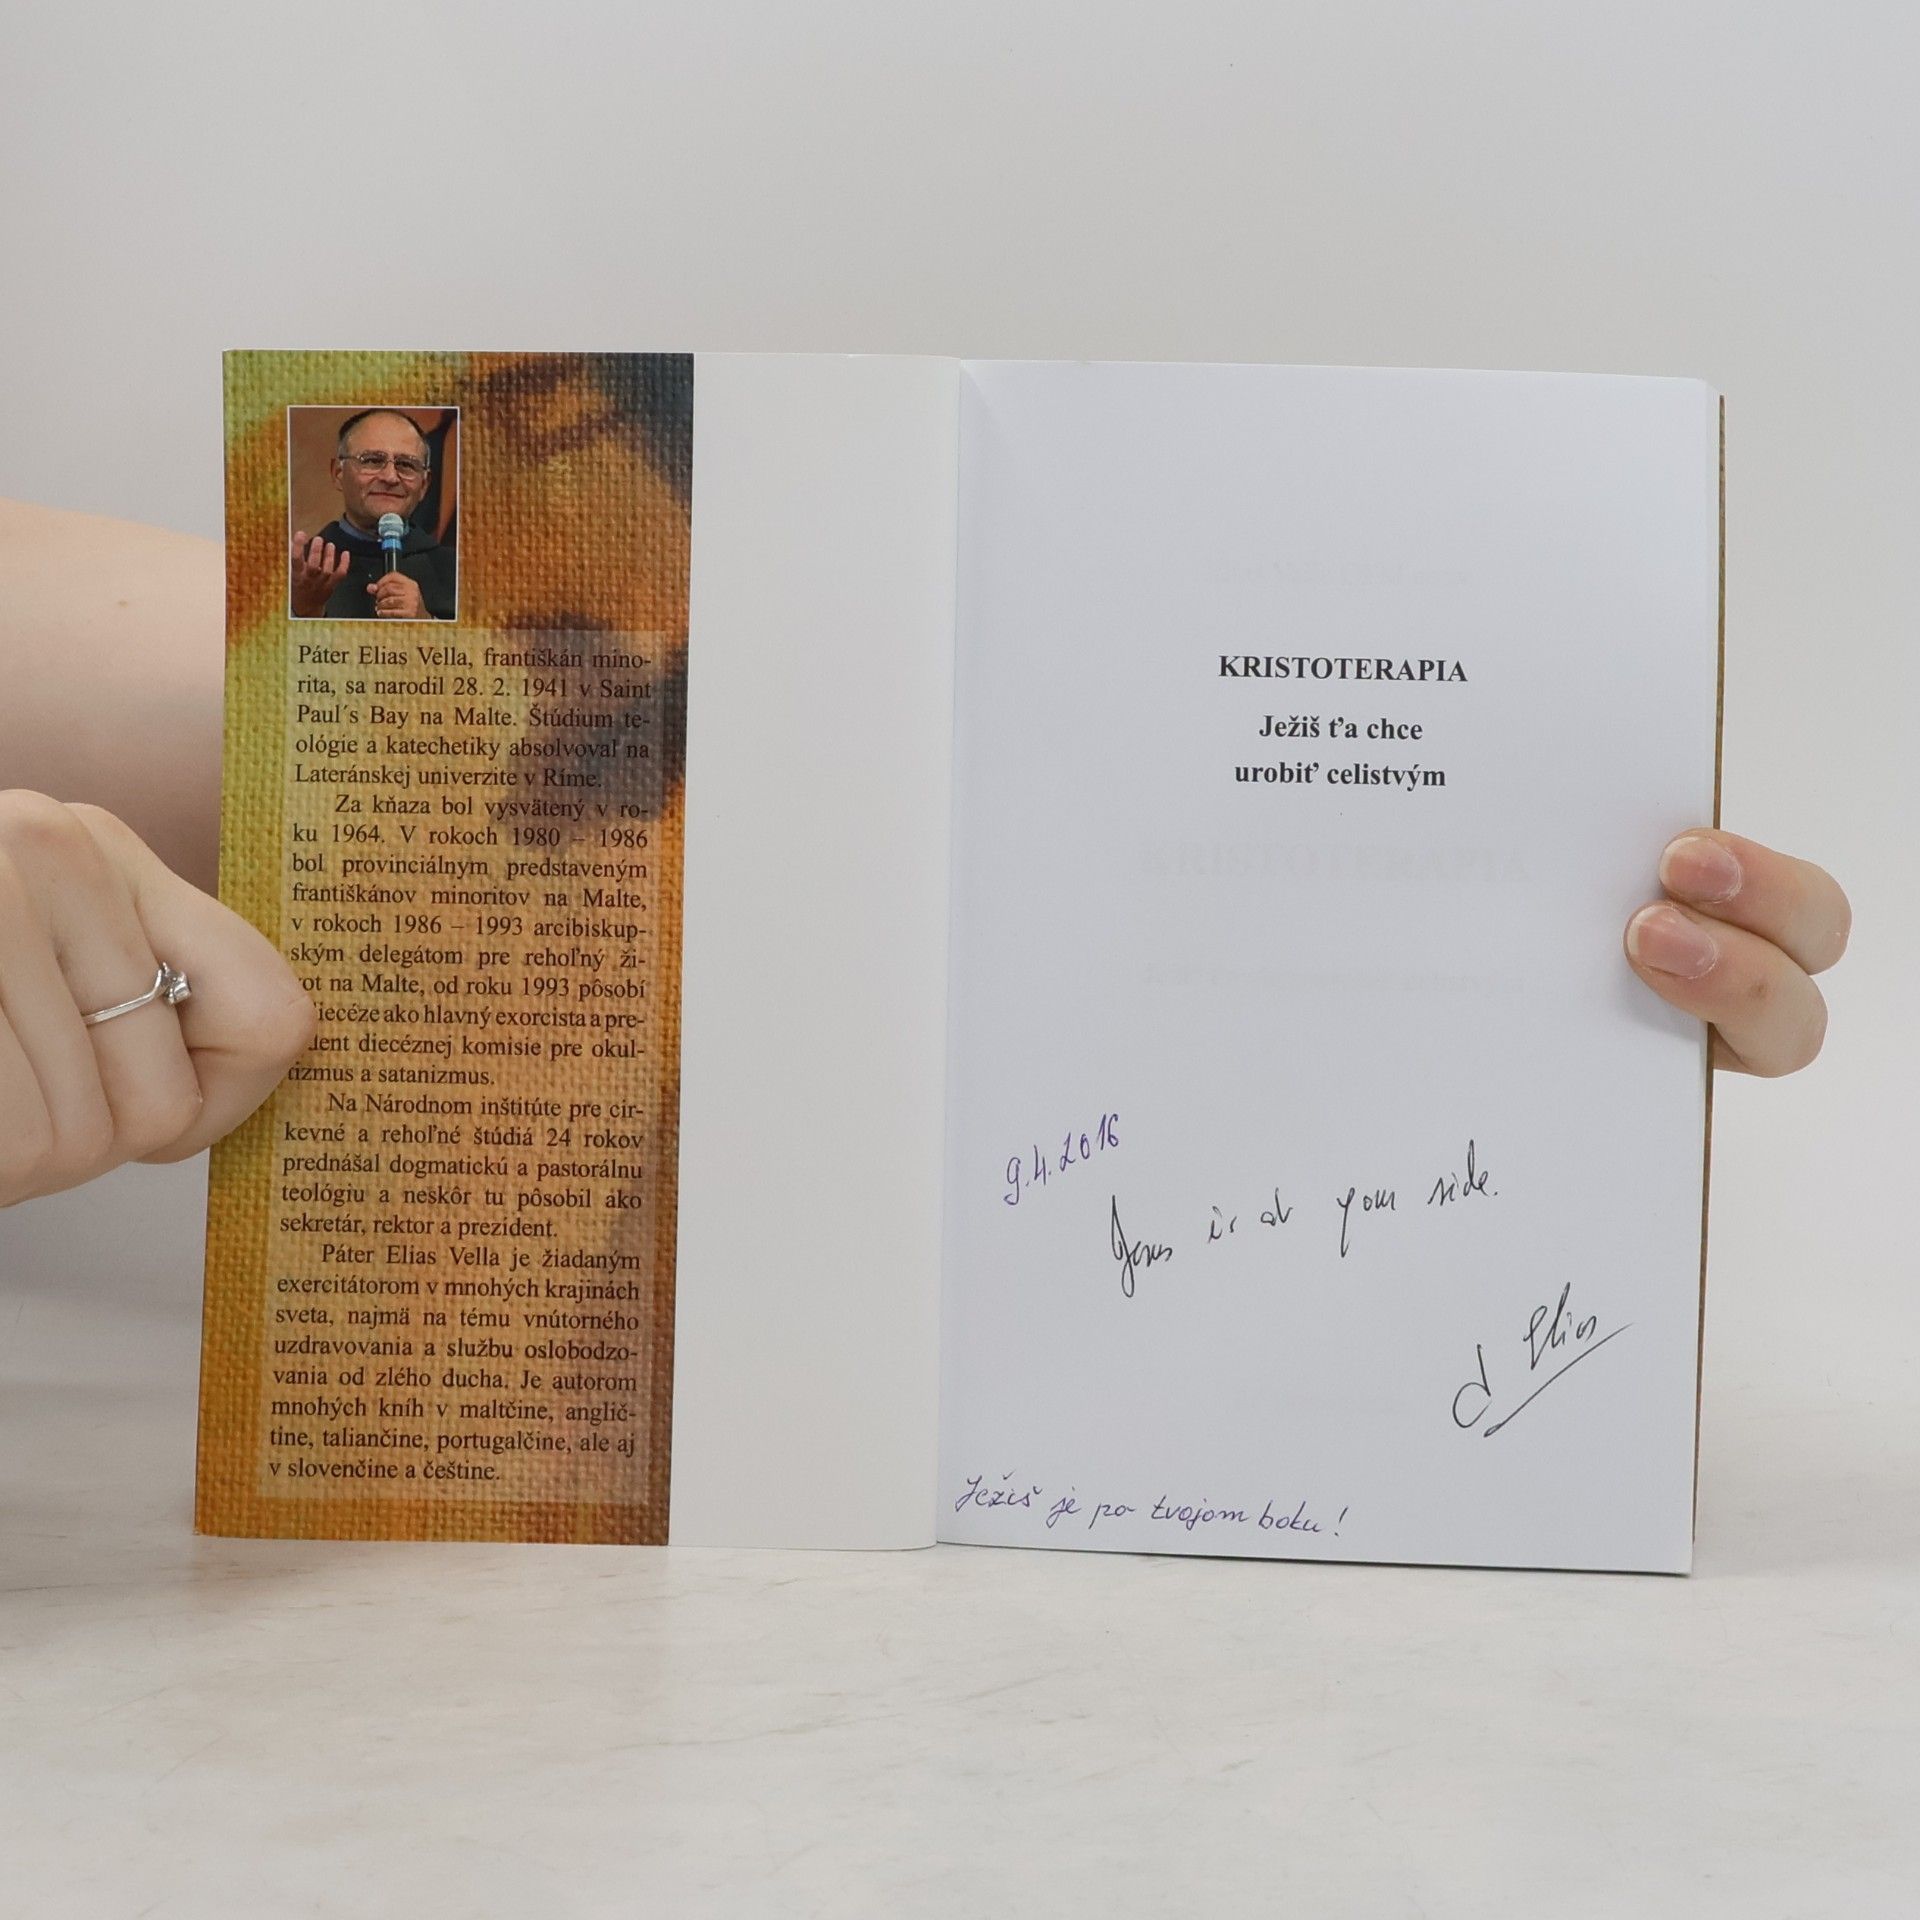 Páter Elias Vella, františkán mino-
rita, sa narodil 28. 2. 1941 v Saint
Paul´s Bay na Malte. Štúdium te-
ológie a katechetiky absolvoval na
Lateránskej univerzite v Ríme.
Za kňaza bol vysvätený v ro-
ku 1964. V rokoch 1980 – 1986
bol provinciálnym predstaveným
františkánov minoritov na Malte,
v rokoch 1986 – 1993 arcibiskup-
ským delegátom pre rehoľný ži-
vot na Malte, od roku 1993 pôsobí
diecéze ako hlavný exorcista a pre-
dent diecéznej komisie pre okul-
tizmus a satanizmus.
Na Národnom inštitúte pre cir-
kevné a rehoľné štúdiá 24 rokov
prednášal dogmatickú a pastorálnu
teológiu a neskôr tu pôsobil ako
sekretár, rektor a prezident.
Páter Elias Vella je žiadaným
exercitátorom v mnohých krajinách
sveta, najmä na tému vnútorného
uzdravovania a službu oslobodzo-
vania od zlého ducha. Je autorom
mnohých kníh v maltčine, anglič-
tine, taliančine, portugalčine, ale aj
v slovenčine a češtine.
KRISTOTERAPIA
Ježiš ťa chce
urobiť celistvým
9.4.2016
Jesus is at your side.
Elias
Ježiš je po tvojom boku!